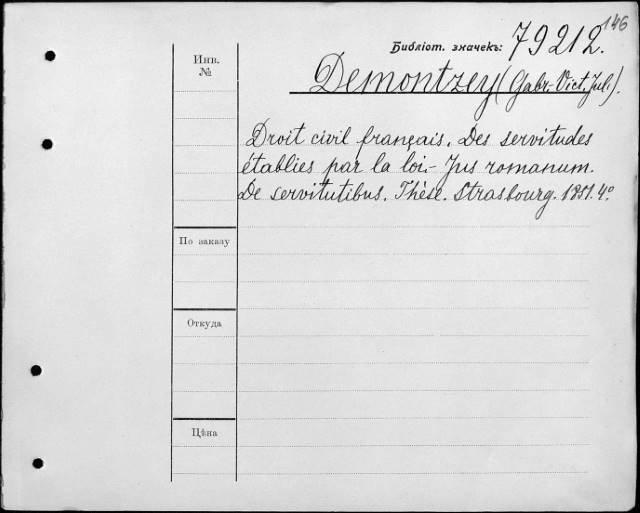 146
Библіот. значекъ: 79212.
Инв.
№
Demontzey (Gabr.-Vict. Jul.).
Droit civil français. Des servitudes
établies par la loi.- Jus romanum.
De servitutibus. Thèse. Strasbourg. 1851. 4º
По заказу
Откуда
Цѣна